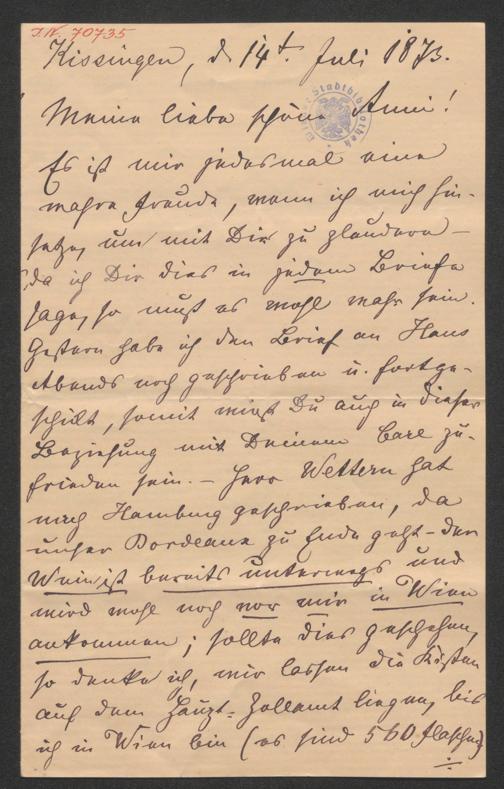 J.N. 70735
Kissingen, d. 14t. Juli 1873.
Meine liebe schöne Anni!
Es ist mir jedesmal eine
wahre Freude, wenn ich mich hin-
setze, um mit Dir zu plaudern –
da ich Dir dies in jedem Briefe
sage, so muß es wohl wahr sein.
Gestern habe ich den Brief an Hans
Abends noch geschrieben u. fortge-
schickt, somit wirst Du auch in dieser
Beziehung mit Deinem Carl zu-
frieden sein. – Herr Wettern hat
nach Hamburg geschrieben, da
unser Bordeaux zu Ende geht – der
Wein ist bereits unterwegs und
wird wohl noch vor mir in Wien
ankommen; sollte dies geschehen,
so denke ich, wir lassen die Kisten
auf dem Haupt-Zollamt liegen, bis
ich in Wien bin (es sind 560 Flaschen)